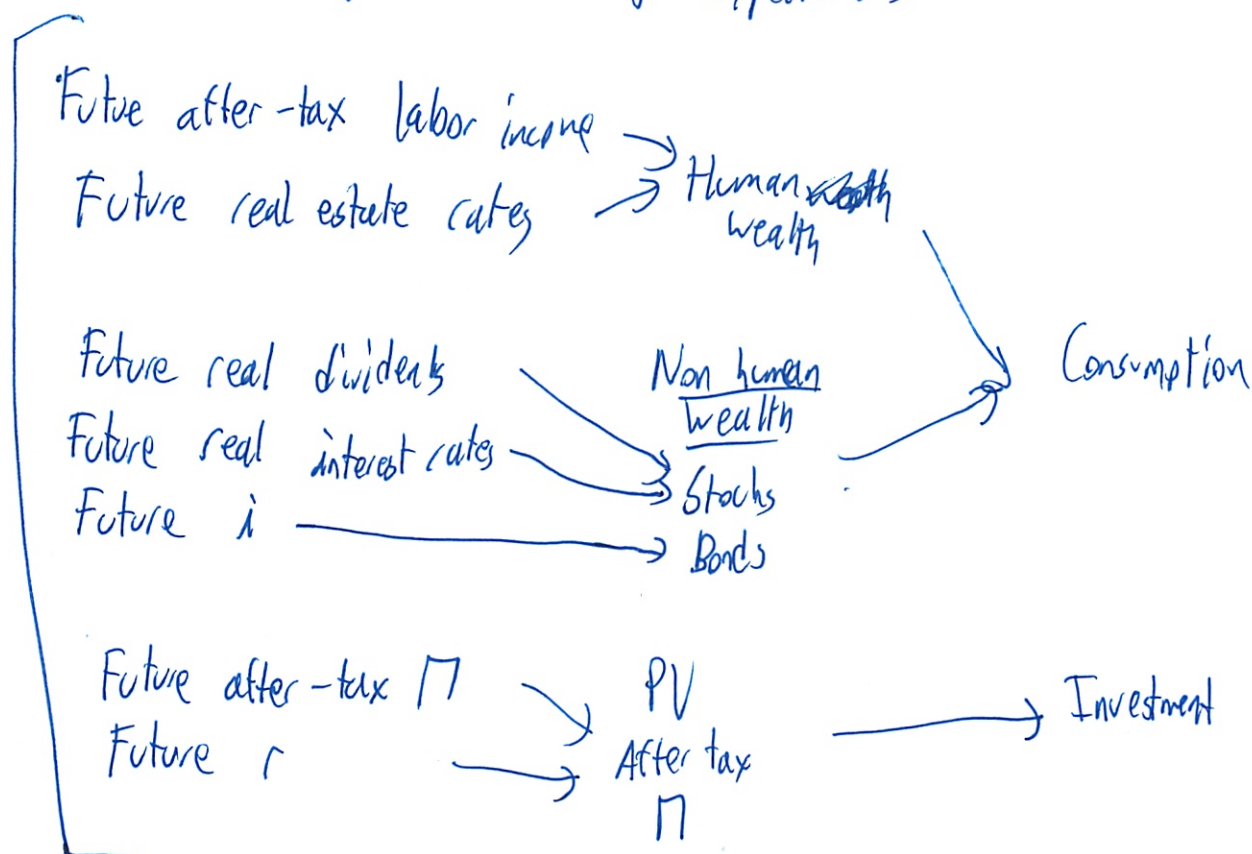 Futue after-tax labor income
Future real estate rates
Human
wealth
Future real dividents
Future real interest rates
Future i
Non human
wealth
Stocks
Bonds
Consumption
Future after-tax Π
Future r
PV
After tax
Π
Investment